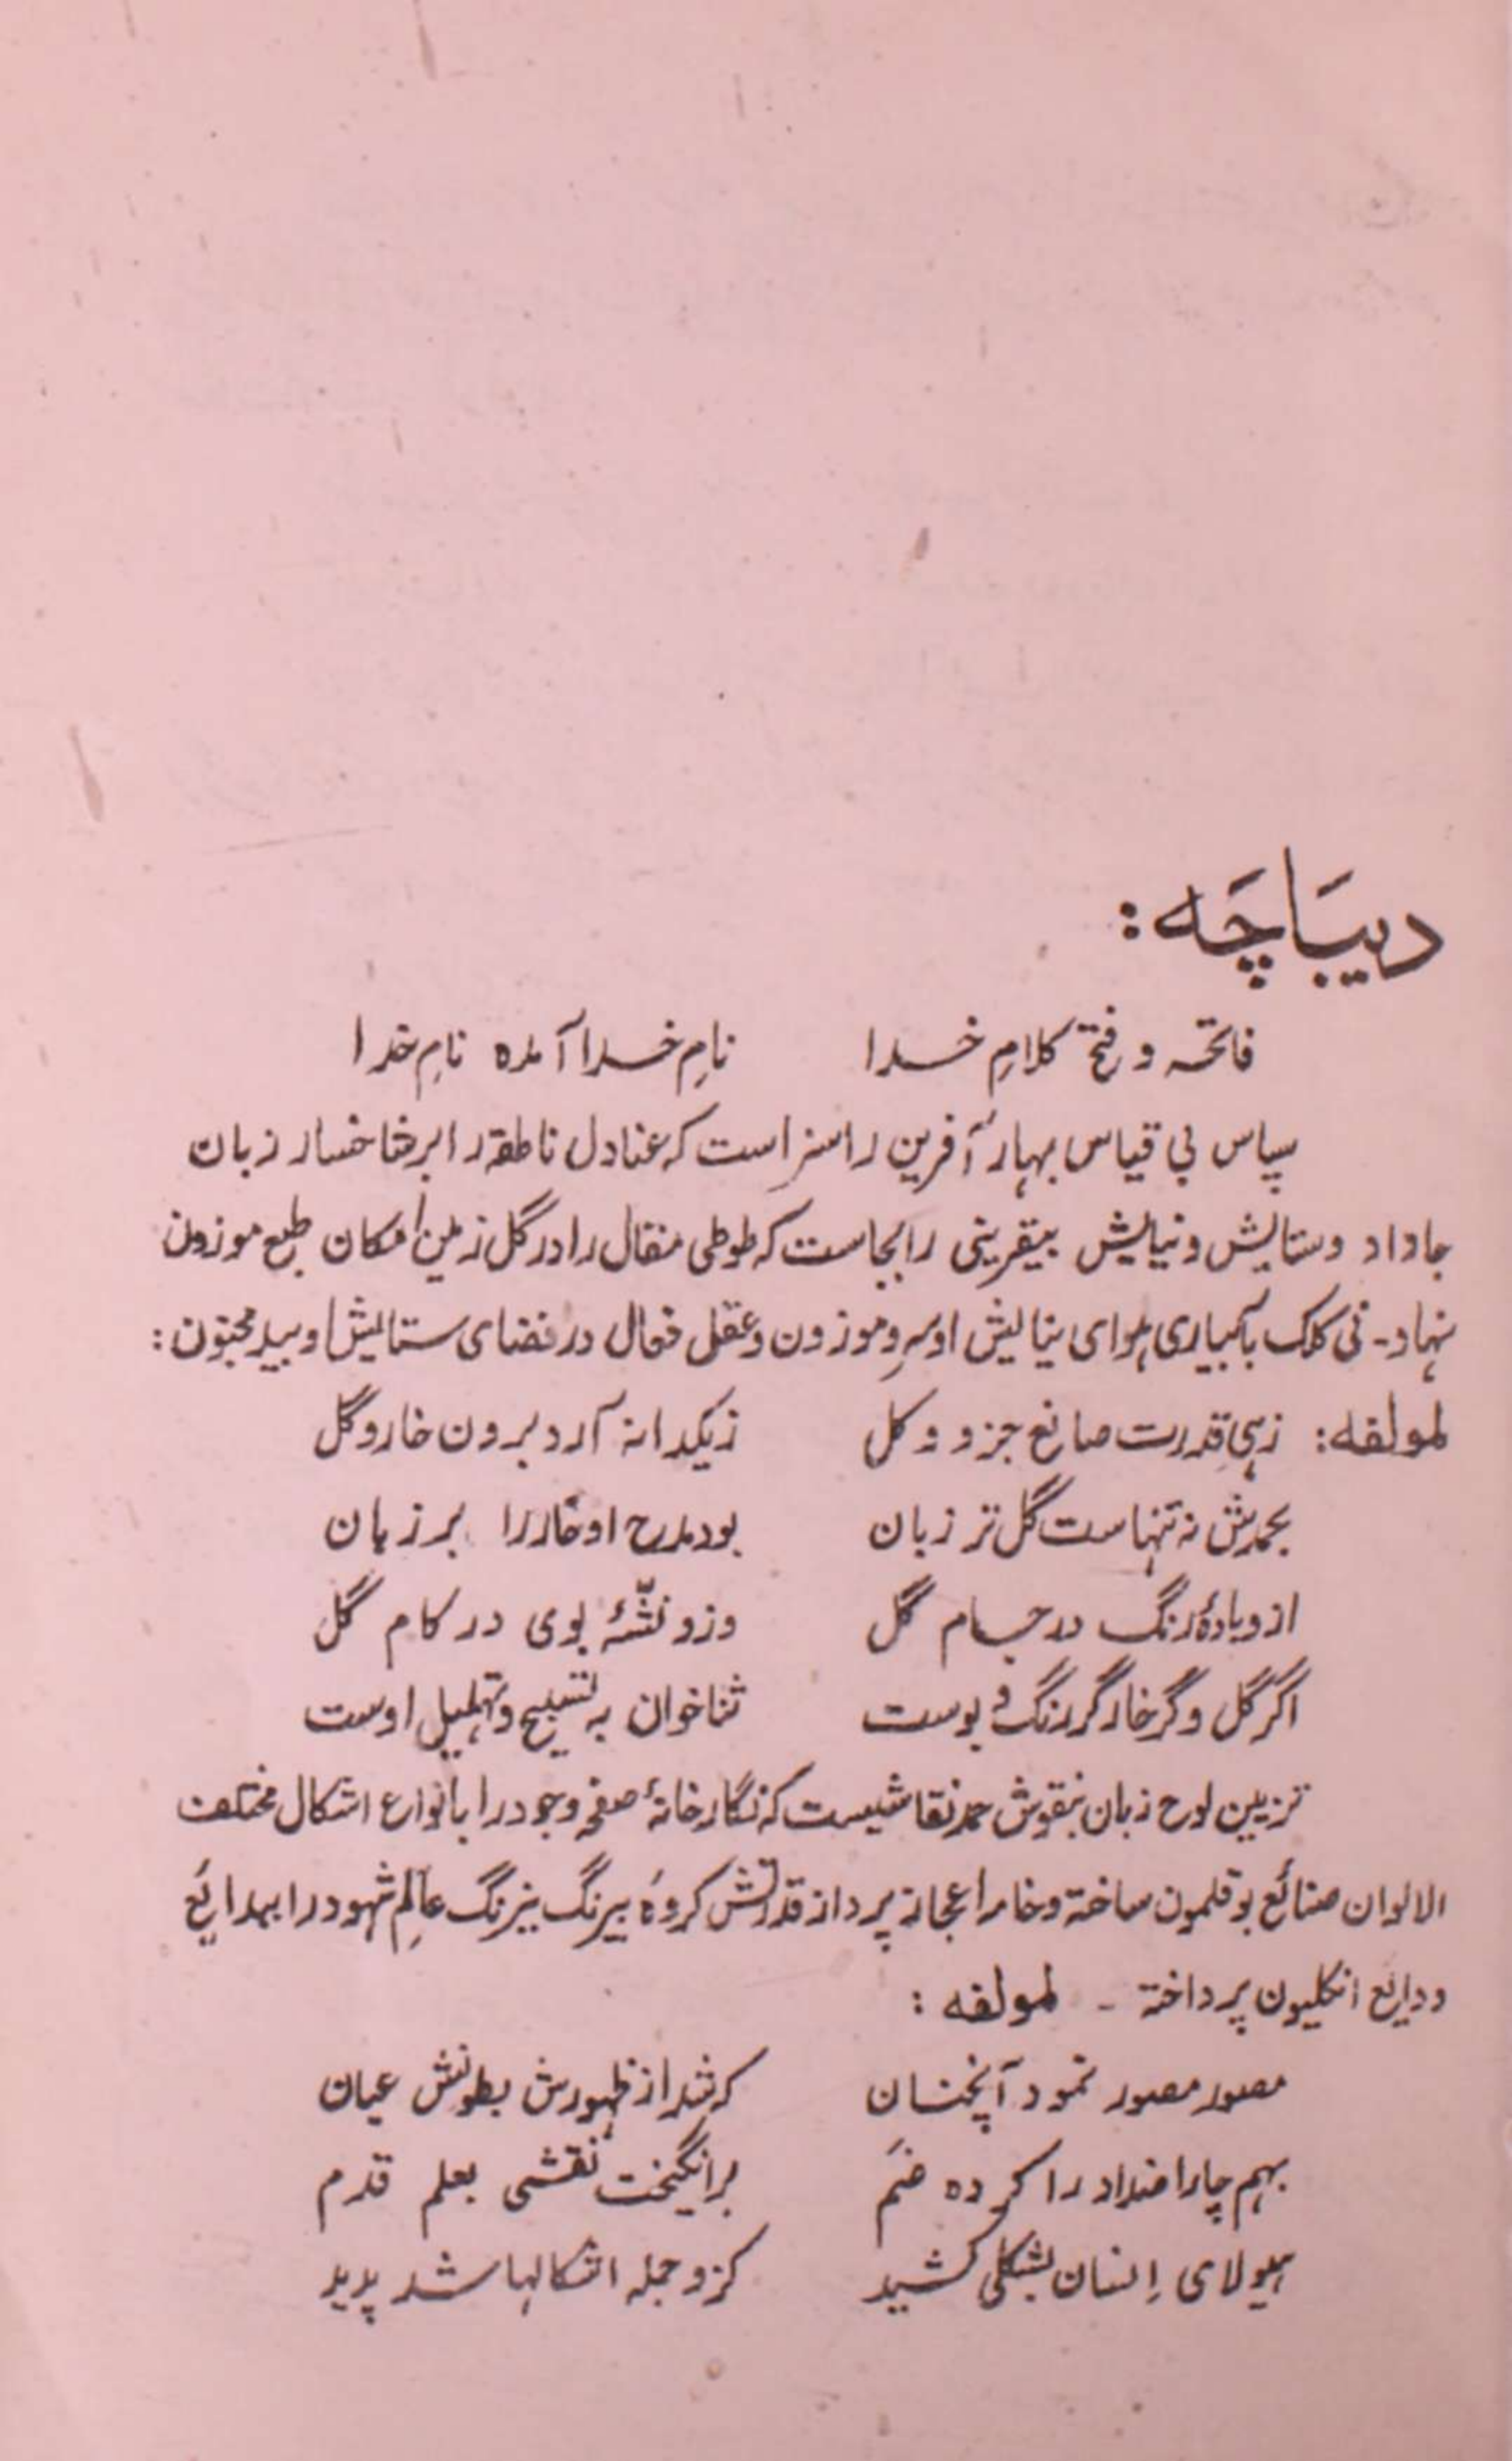 دیبَاچَه:
فاتحہ و فتح کلامِ خدا نامِ خدا آمده نامِ خدا
سپاس بی قیاس بہار آفرین را سزا است که عنادل ناطقه را بر شاخسار زبان
جا داد و ستایش و نیایش بیقرینی را بجاست که طوطی منقال را در گل زمین امکان طبع موزون
نہاد۔ نی کلک بآبیاری ہوای نیایش او سرو موزون و عقل فعال در فضای ستایش او بید مجنون:
لمولفه: زہی قدرت صانع جزو و کل ز یکدانه آرد برون خار و گل
بحمدش نه تنہاست گل تر زبان بود مدح او خار را بر زبان
ازو بادۂ رنگ در جام گل وزو نشّۂ بوی در کام گل
اگر گل و گر خار گر رنگ و بوست ثنا خوان به تسبیح و تہلیل اوست
تزیین لوح زبان بنقوش حمد نقاشیست که نگارخانۂ صفحۂ وجود را بانواع اشکال مختلف
الالوان صنائع بوقلمون ساخته و خامۂ اعجاز پرداز قدرتش گروۂ بیرنگ نیرنگ عالمِ شہود را ببدایع
ودایع انگلیون پرداخته ۔ لمولفه:
مصور مصور نمود آنچنان که شد از ظہورش بطونش عیان
بہم چار اضداد را کرده ضَم برانگیخت نقشی بعلم قدم
ہیولای اِنسان بشکلی کشید کزو جمله اشکالہا شد پدید